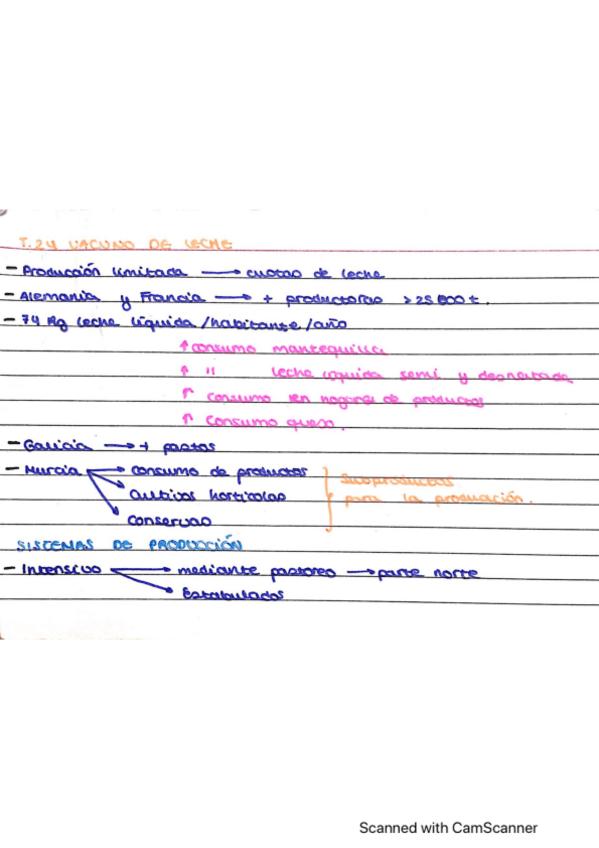 T.24 VACUNO DE LECHE
- Producción limitada → cuotas de leche
- Alemania y Francia → + productoras > 25.000 t.
- 74 Kg leche líquida / habitante / año
↑ consumo mantequilla
↑ " leche líquida semi y desnatada
↑ consumo en hogares de productos
↑ consumo queso.
- Galicia → + pastos
- Murcia → consumo de productos
→ Cultivos hortícolas
→ Conservas
subproductos
para la producción.
SISTEMAS DE PRODUCCIÓN
- Intensivo → mediante pastoreo → parte norte
→ Estabulados
Scanned with CamScanner